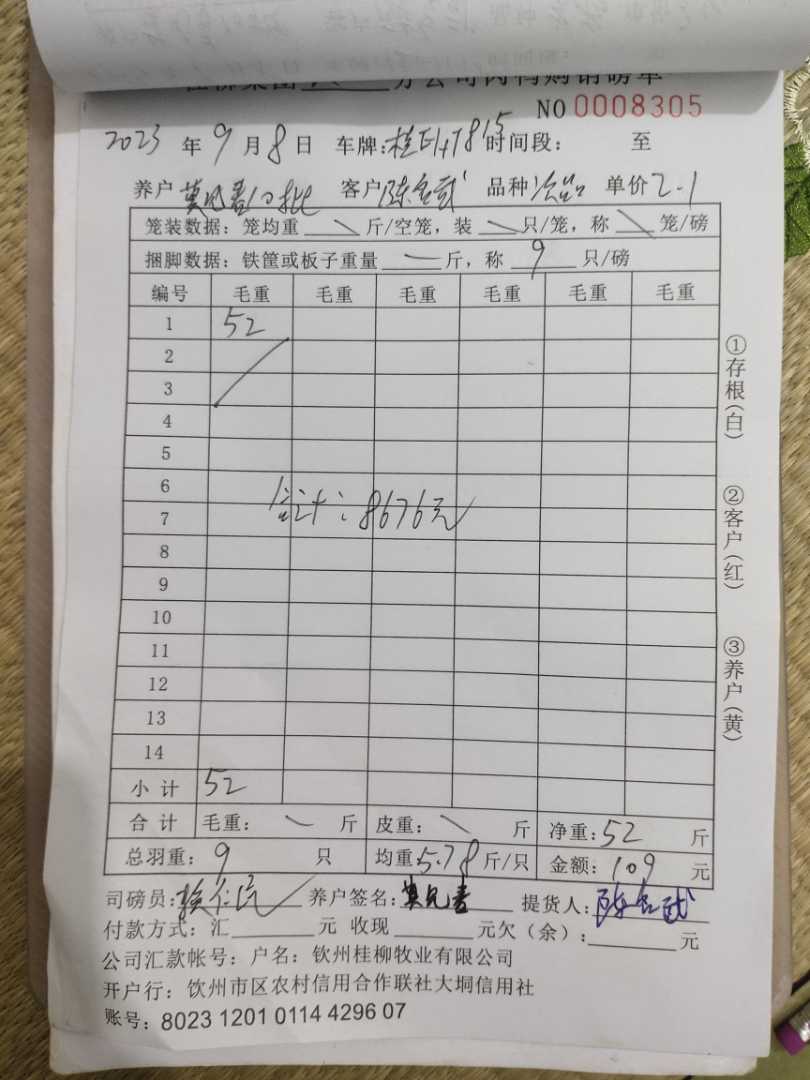 分公司肉鸭购销磅单
NO 0008305
2023 年 9 月 8 日 车牌: 时间段: 至
养户 客户 品种 次品 单价 2.1
笼装数据: 笼均重 斤/空笼, 装 只/笼, 称 笼/磅
捆脚数据: 铁筐或板子重量 斤, 称 9 只/磅
编号 毛重 毛重 毛重 毛重 毛重 毛重
1 52
2
3
4
5
6
合计: 8676元
7
8
9
10
11
12
13
14
小计 52
合计 毛重: 斤 皮重: 斤 净重: 52 斤
总羽重: 9 只 均重 5.78 斤/只 金额: 109 元
司磅员: 养户签名: 提货人:
付款方式: 汇 元 收现 元欠(余): 元
公司汇款帐号: 户名: 钦州桂柳牧业有限公司
开户行: 钦州市区农村信用合作联社大垌信用社
账号: 8023 1201 0114 4296 07
①存根(白)
②客户(红)
③养户(黄)